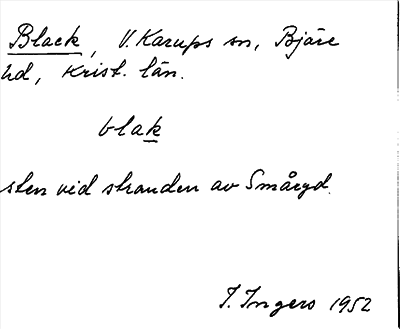 Black, V. Karups sn, Bjäre
hd, Krist. län.
blak
sten vid stranden av Smäryd.
I. Ingers 1952